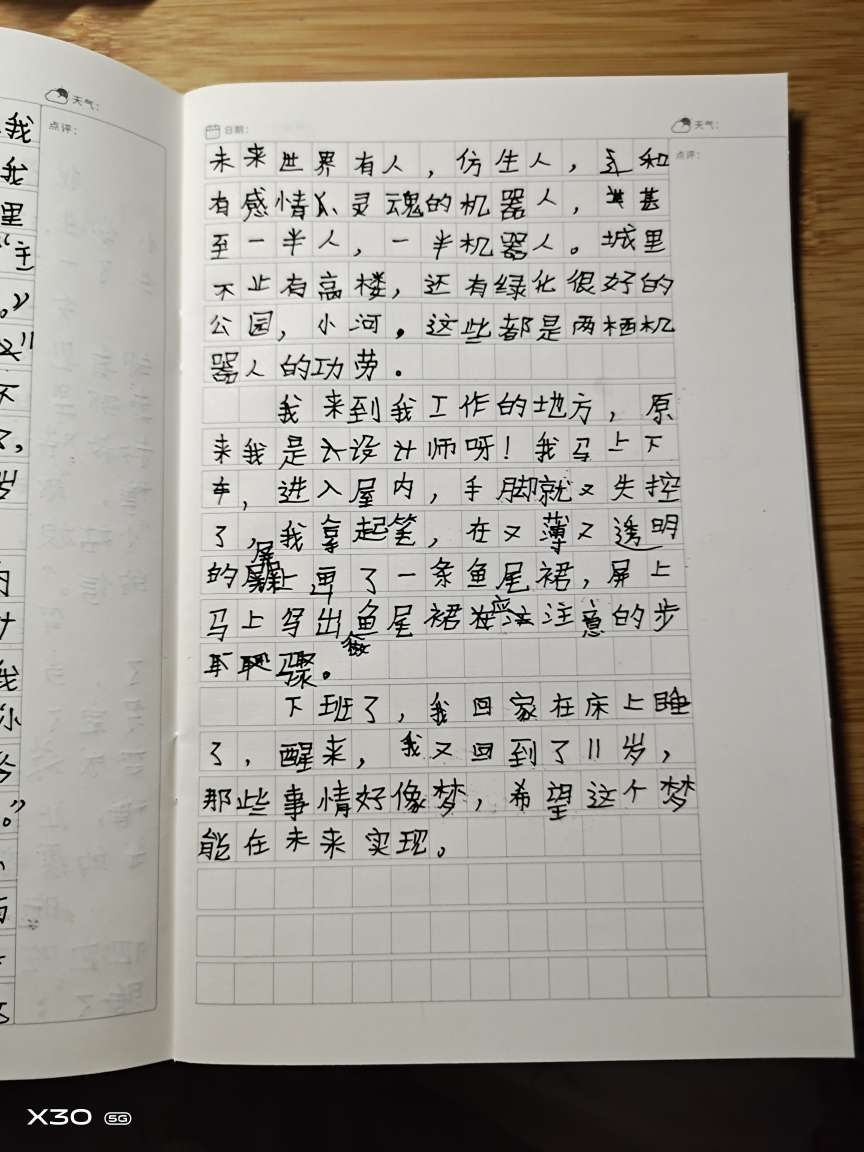 我
天气：
点评：
我
里
“主
不
岁
我
日期：
天气：
点评：
未来世界有人，仿生人，还和
有感情灵魂的机器人，甚
至一半人，一半机器人。城里
不止有高楼，还有绿化很好的
公园，小河。这些都是两栖机
器人的功劳。
我来到我工作的地方，原
来我是设计师呀！我马上下
车，进入屋内，手脚就又失控
了，我拿起笔，在又薄又透明
的屏上画了一条鱼尾裙，屏上
马上写出做鱼尾裙应注意的步
骤。
下班了，我回家在床上睡
了，醒来，我又回到了11岁，
那些事情好像梦，希望这个梦
能在未来实现。
X30 5G